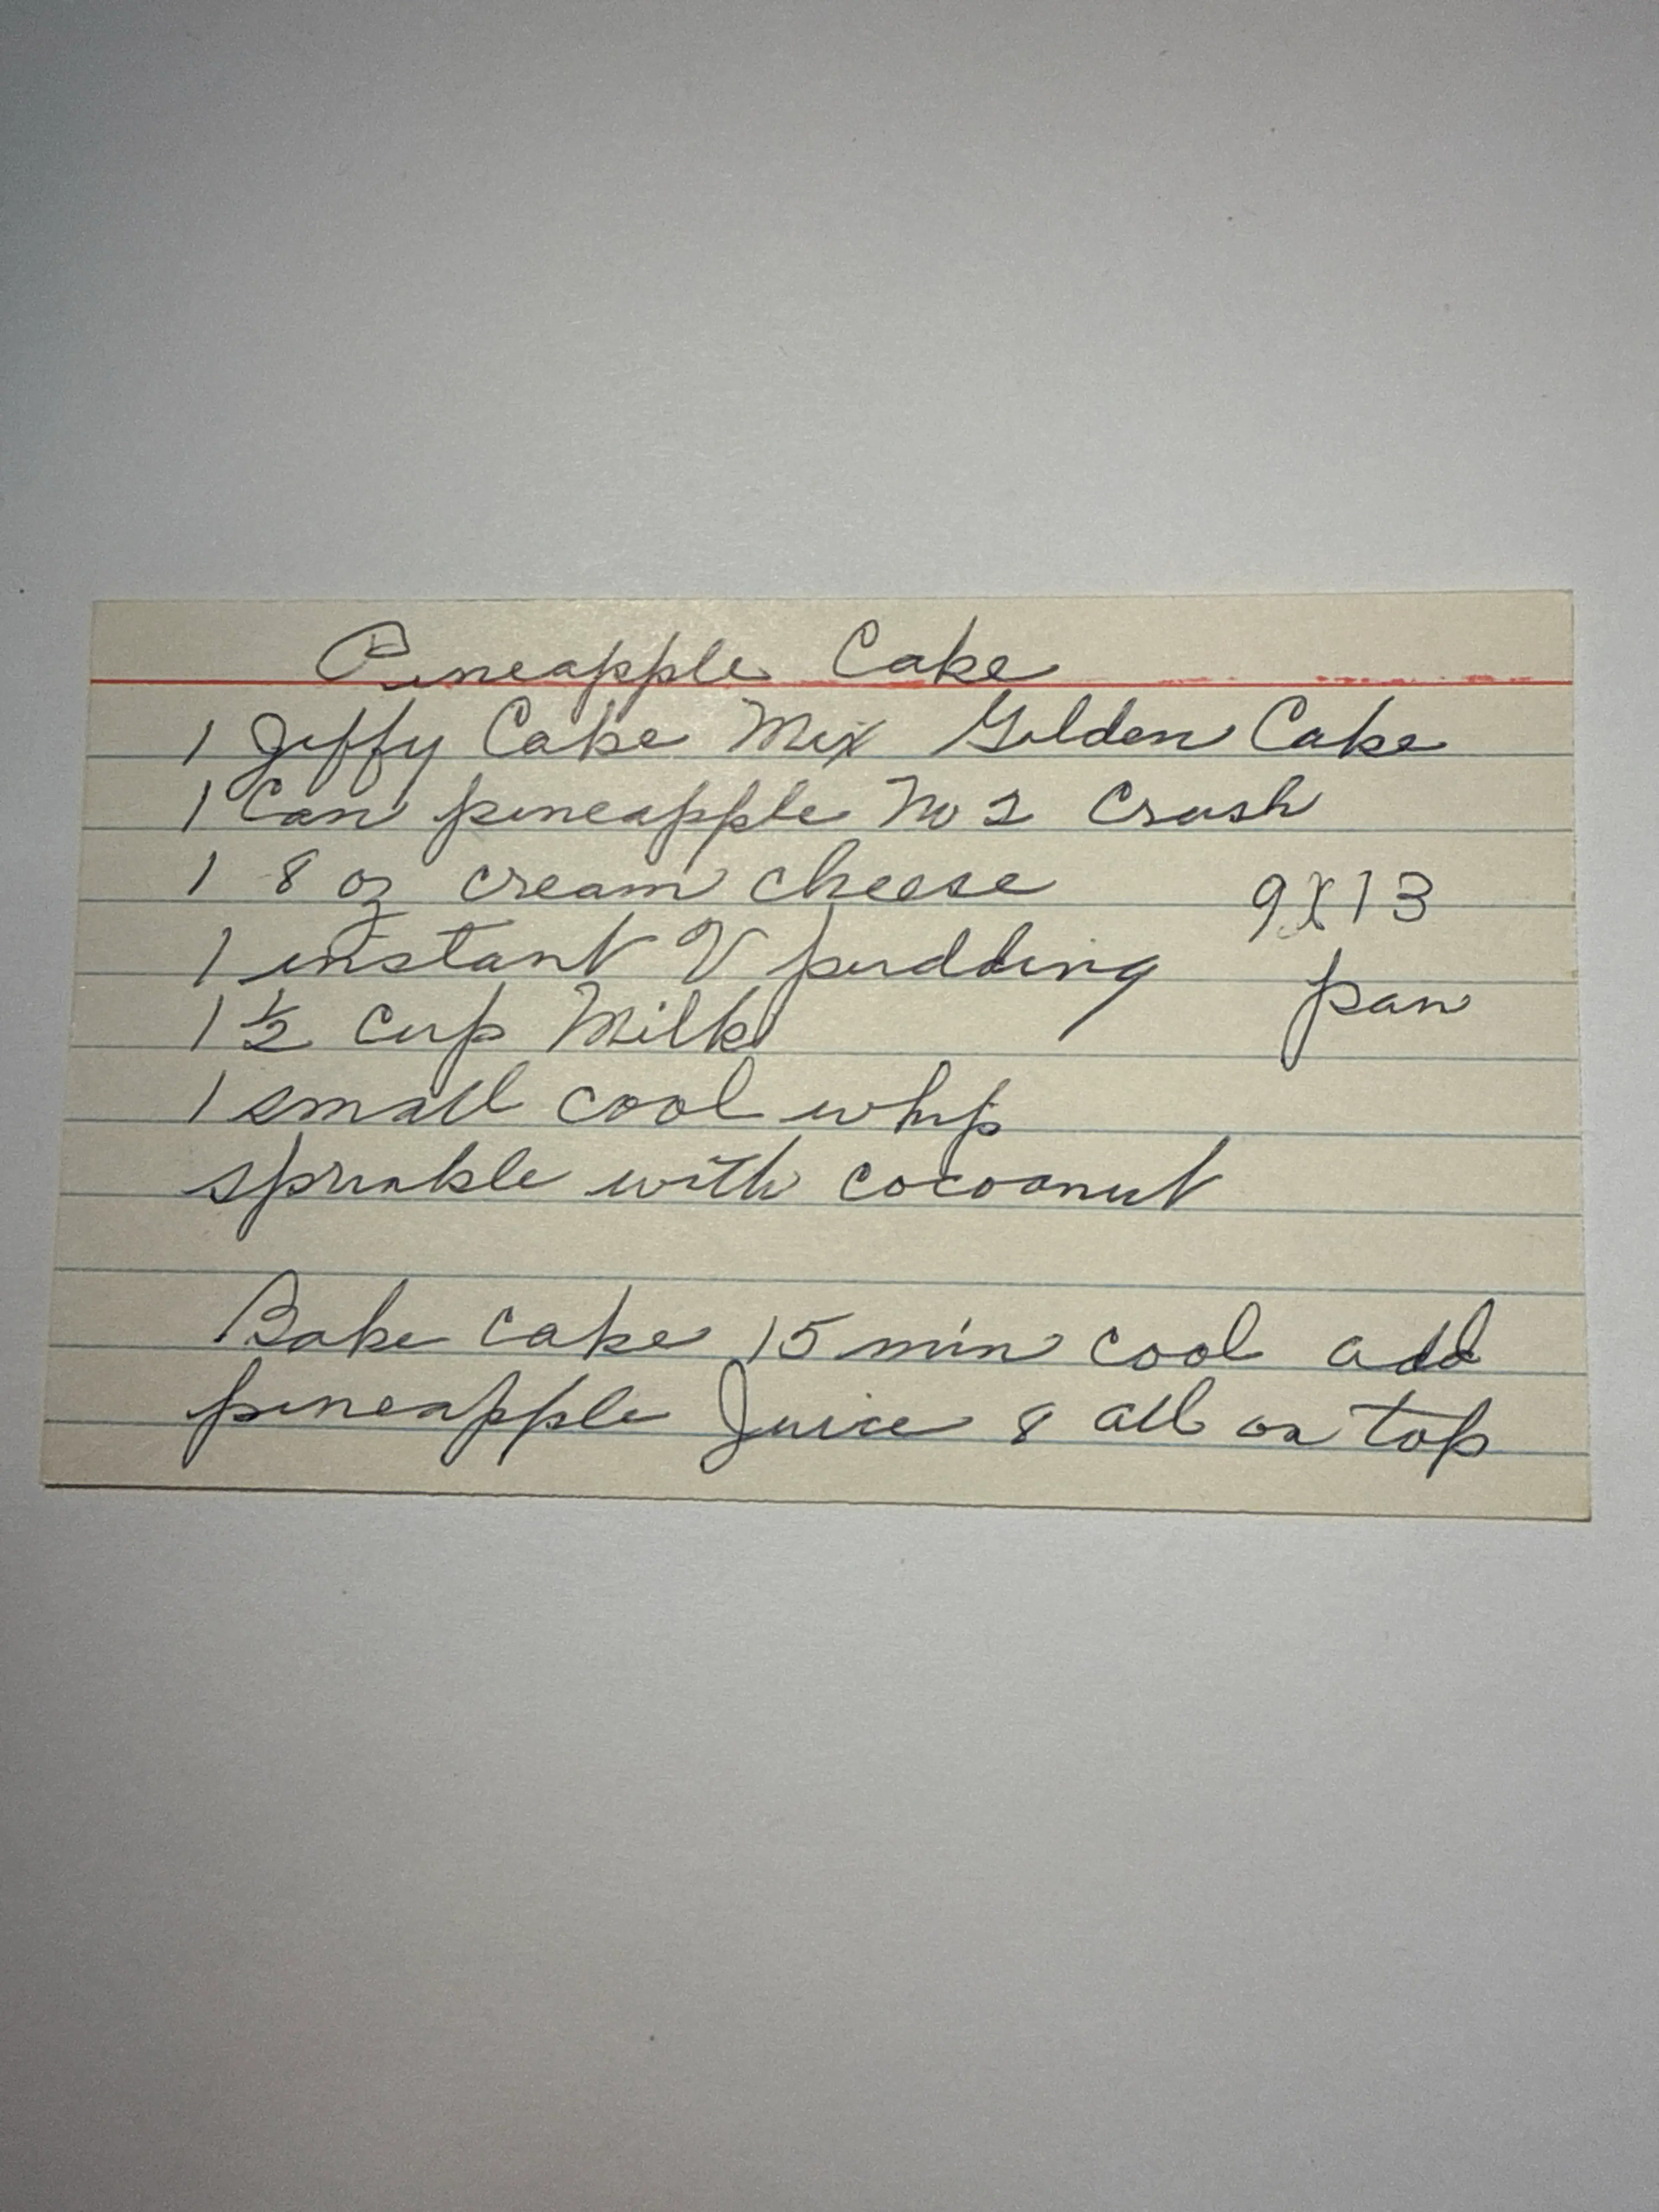 Pineapple Cake
1 Jiffy Cake Mix Golden Cake
1 Can pineapple No 2 Crush
1 8 oz cream cheese
9X13
1 instant V pudding
pan
1 ½ Cup Milk
1 small cool whip
sprinkle with cocoanut
Bake cake 15 min cool add
pineapple Juice & all on top